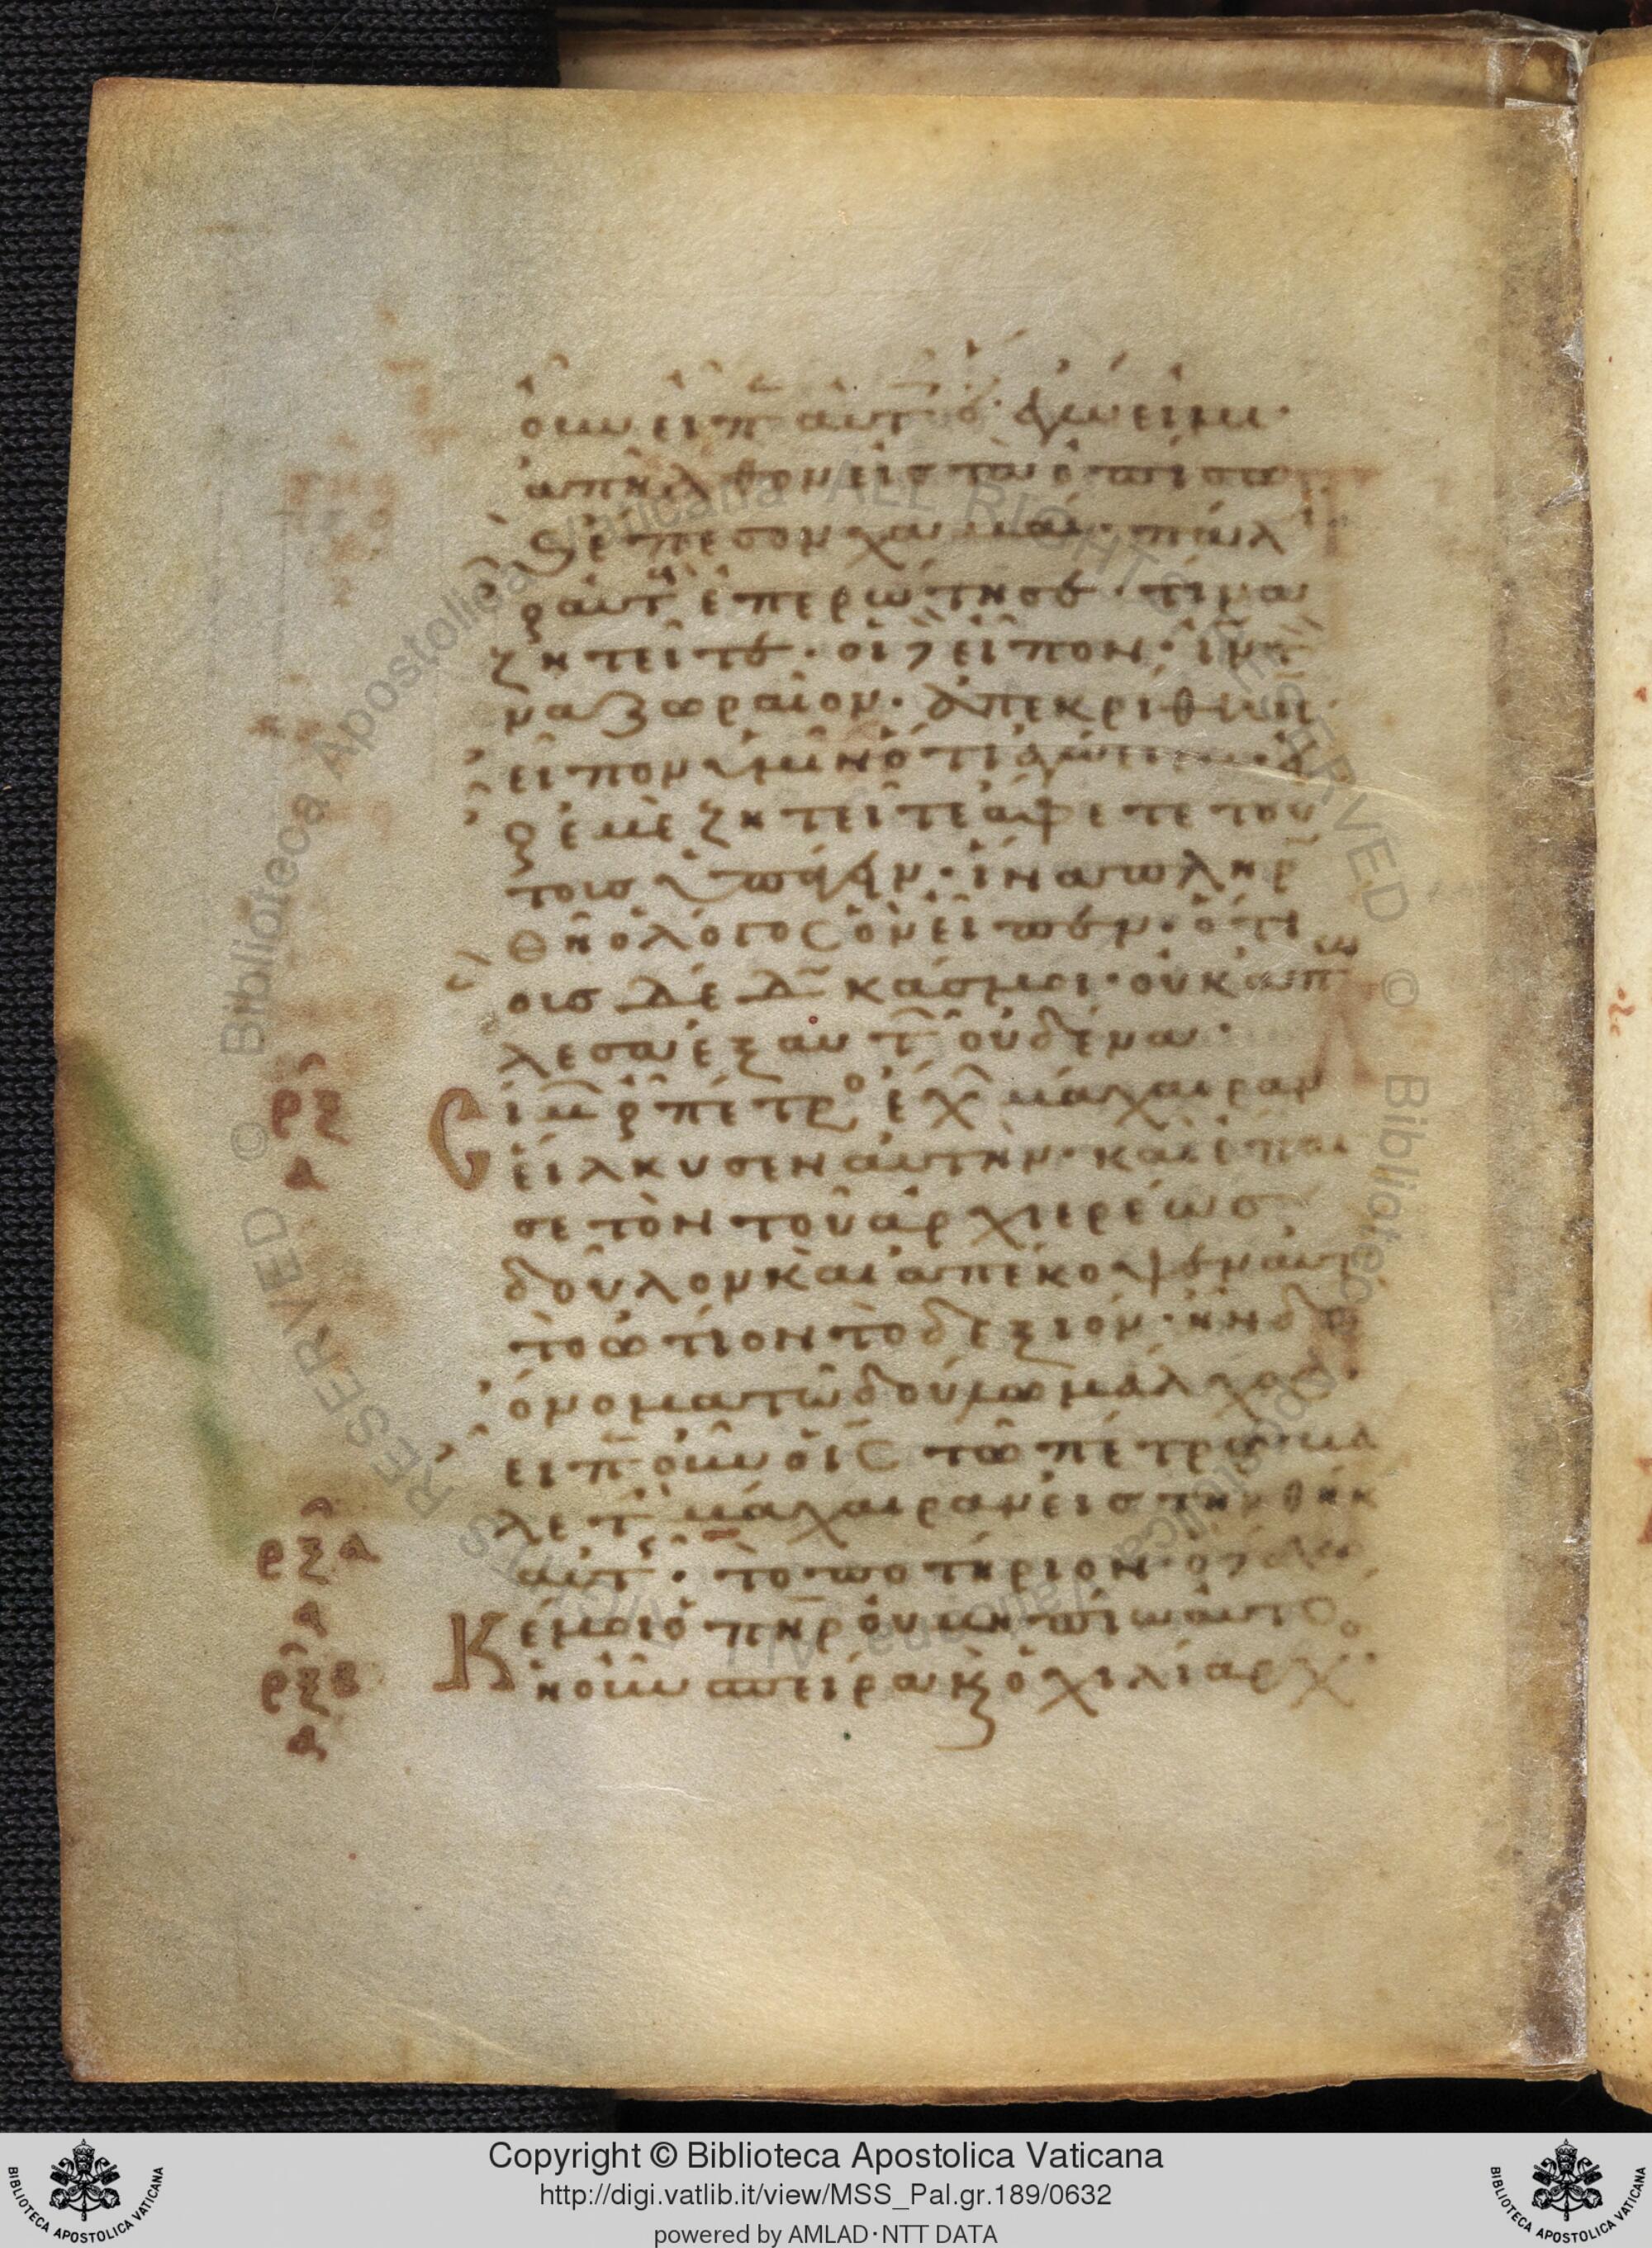 οὖν εἶπ αὐτ ὅ ἐγώ εἰμι·
ἀπῆλθον εἰς τὰ ὀπίσω
ἔπεσον χαμαί· πάλ
αὐτ ἐπερώτησε· τίνα
ζητεῖτε· οἱ εἶπον· ἰν τ
ναζωραῖον· ἀπεκρίθη
εἶπον ὑμῖν ὅτι ἐγώ εἰμι· εἰ
ἐμὲ ζητεῖτε ἄφετε τού
τους ὑπάγειν· ἵνα πληρ
θῇ ὁ λόγος ὃν εἶπεν· ὅτι
οὓς δέδ κάς μοι· οὐκ ἀπώ
λεσα ἐξ αὐτ οὐδένα·
ρξ
α
Σίμ πέτρο ἔχ μάχαιραν
εἵλκυσεν αὐτήν· καὶ ἔπαι
σε τὸν τοῦ ἀρχιερέως
δοῦλον καὶ ἀπέκοψεν αὐτ
τὸ ὠτίον τὸ δεξιόν· ἦν δὲ
ὄνομα τῷ δούλῳ μάλχος·
εἶπ οὖν ὁ ις τῷ πέτρῳ· βά
λε τ μάχαιραν εἰς τὴν θήκ
ρξα
α
αὐτ · τὸ ποτήριον ὃ
μοι ὁ πηρ οὐ μὴ πίω αὐτό
ρξβ
α
Κ
ἡ οὖν σπεῖρα κ ὁ χιλίαρχ
Copyright © Biblioteca Apostolica Vaticana
http://digi.vatlib.it/view/MSS_Pal.gr.189/0632
powered by AMLAD·NTT DATA
BIBLIOTECA APOSTOLICA VATICANA
BIBLIOTECA APOSTOLICA VATICANA